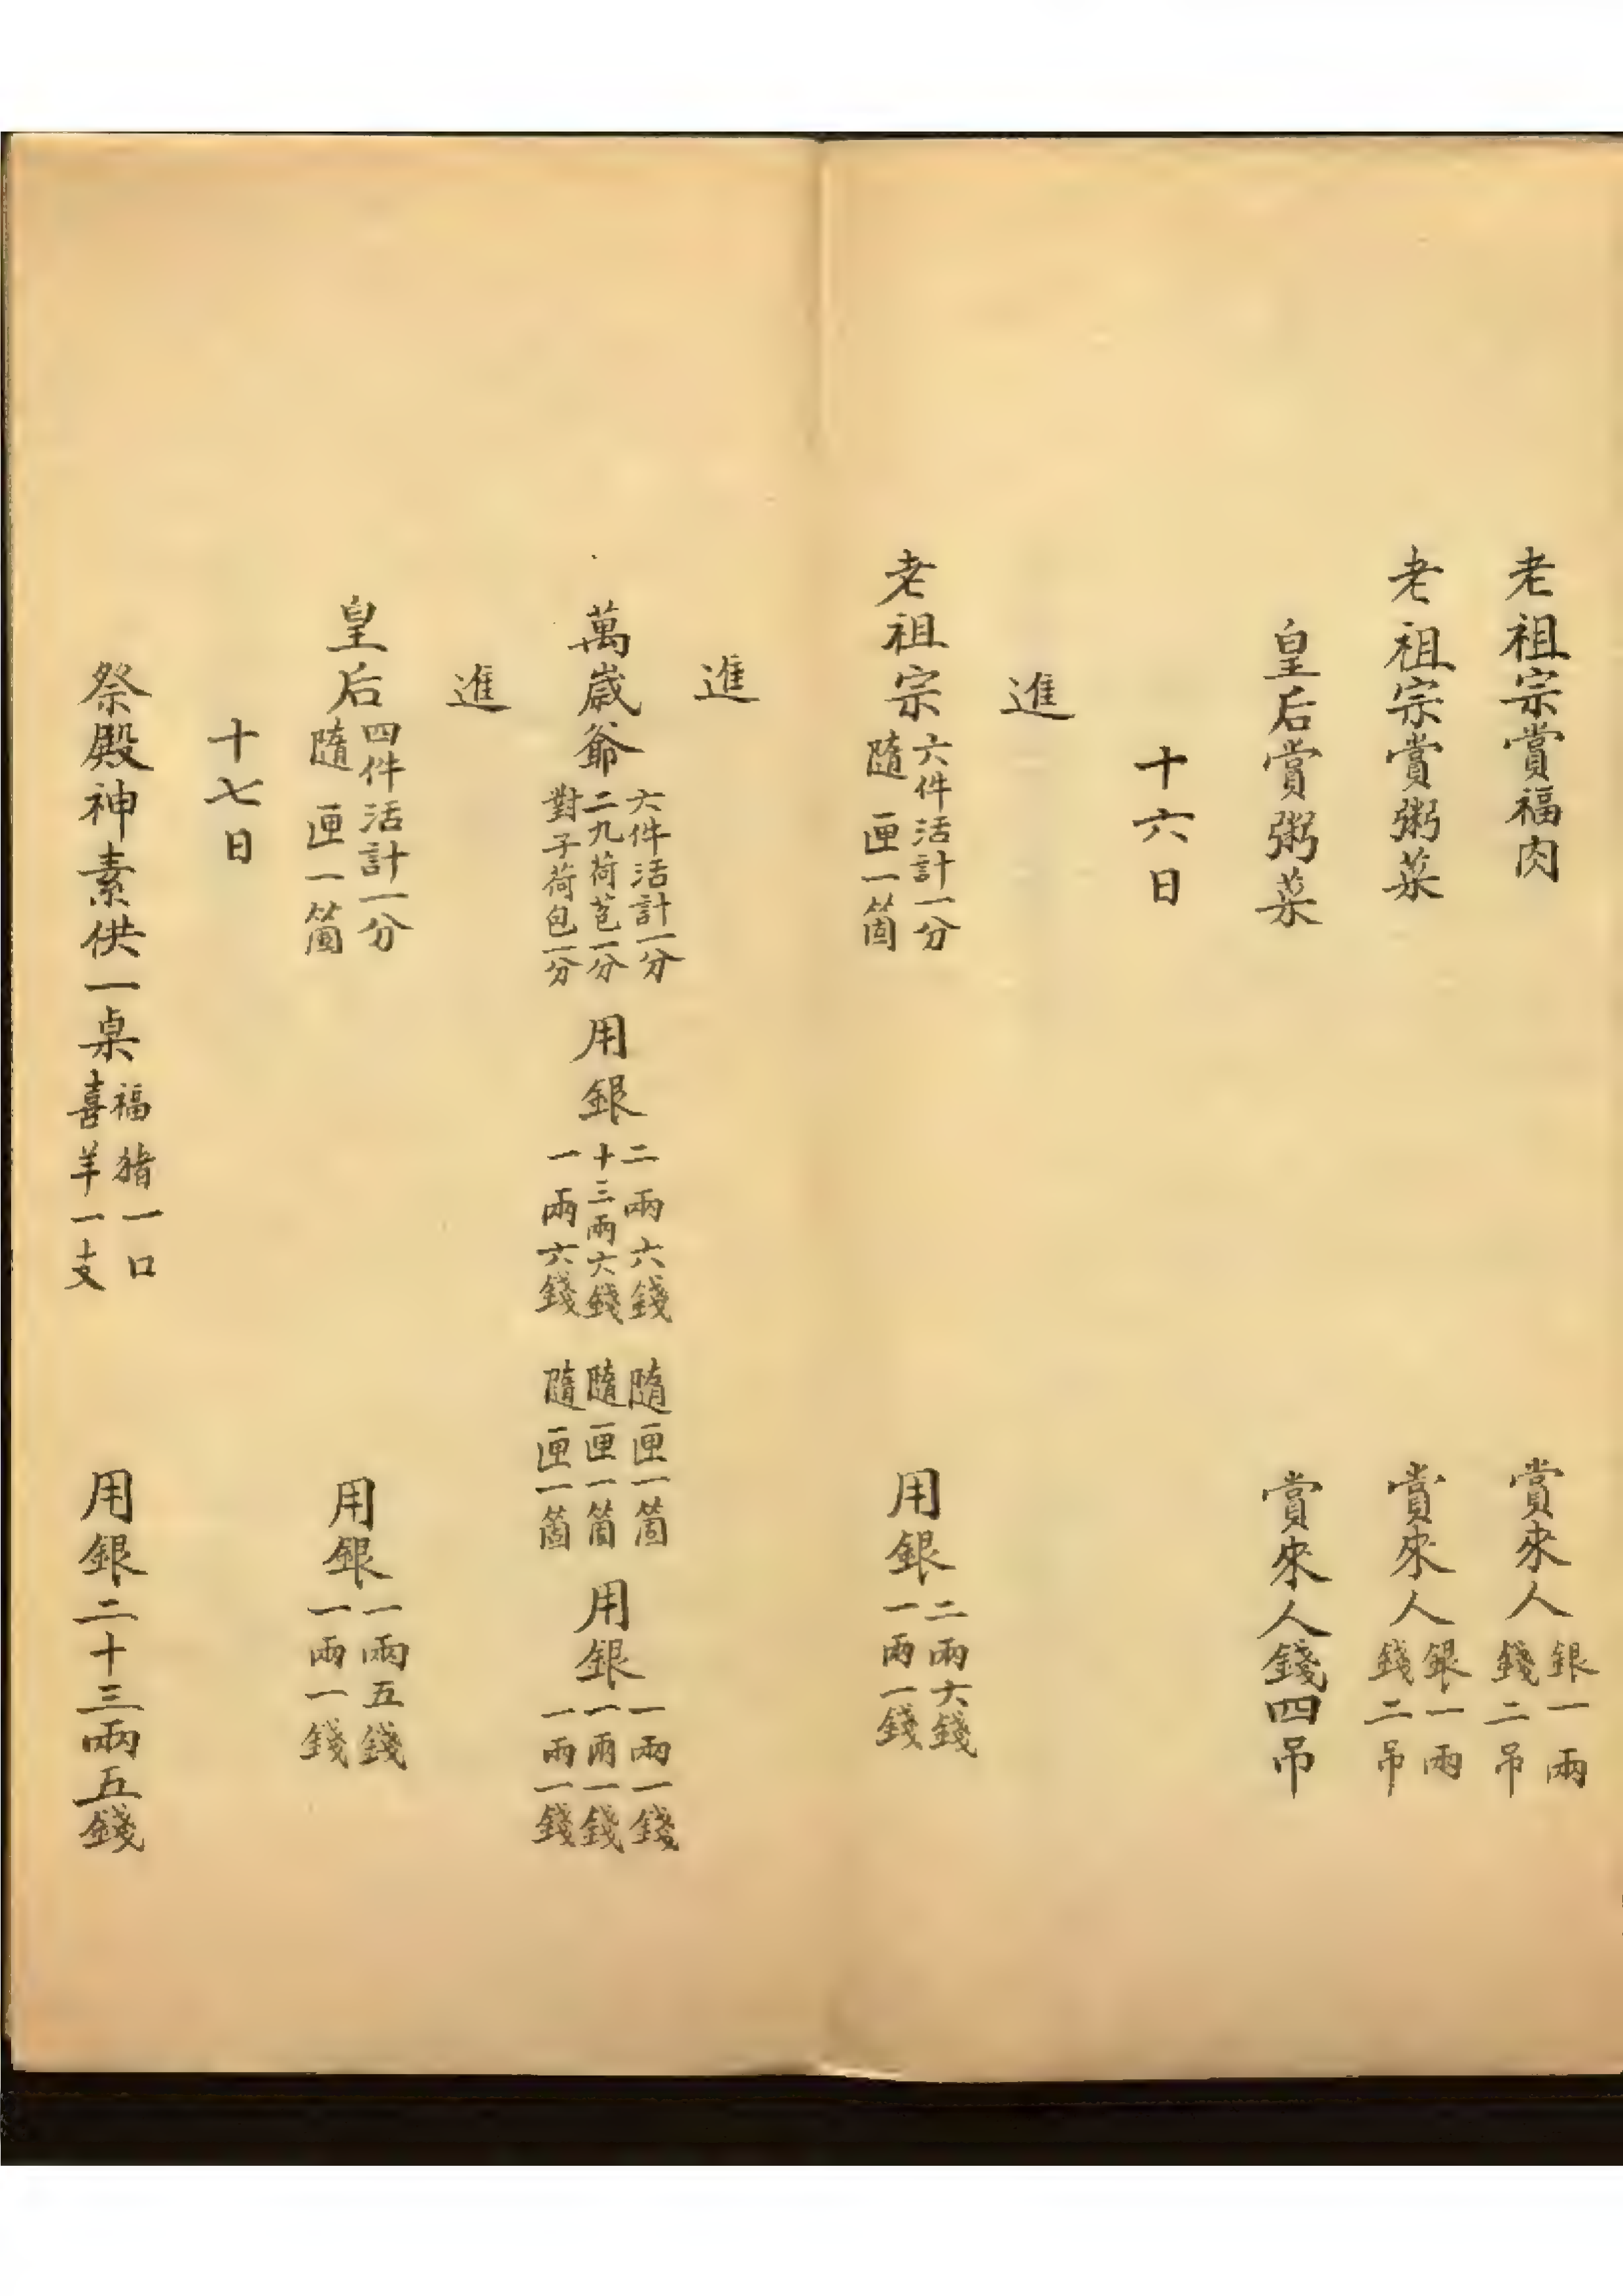 老祖宗賞福肉 賞來人 銀一兩 錢二吊
老祖宗賞粥菜 賞來人 銀一兩 錢二吊
皇后賞粥菜 賞來人錢四吊
十六日
進
老祖宗 六件活計一分 隨匣一箇 用銀 二兩六錢 一兩一錢
進
萬歲爺 六件活計一分 二九荷苞一分 對子荷包一分 用銀 二兩六錢 十三兩六錢 一兩六錢 隨匣一箇 隨匣一箇 隨匣一箇 用銀 一兩一錢 一兩一錢 一兩一錢
進
皇后 四件活計一分 隨匣一箇 用銀 一兩五錢 一兩一錢
十七日
祭殿神素供一桌 福猪一口 喜羊一支 用銀二十三兩五錢